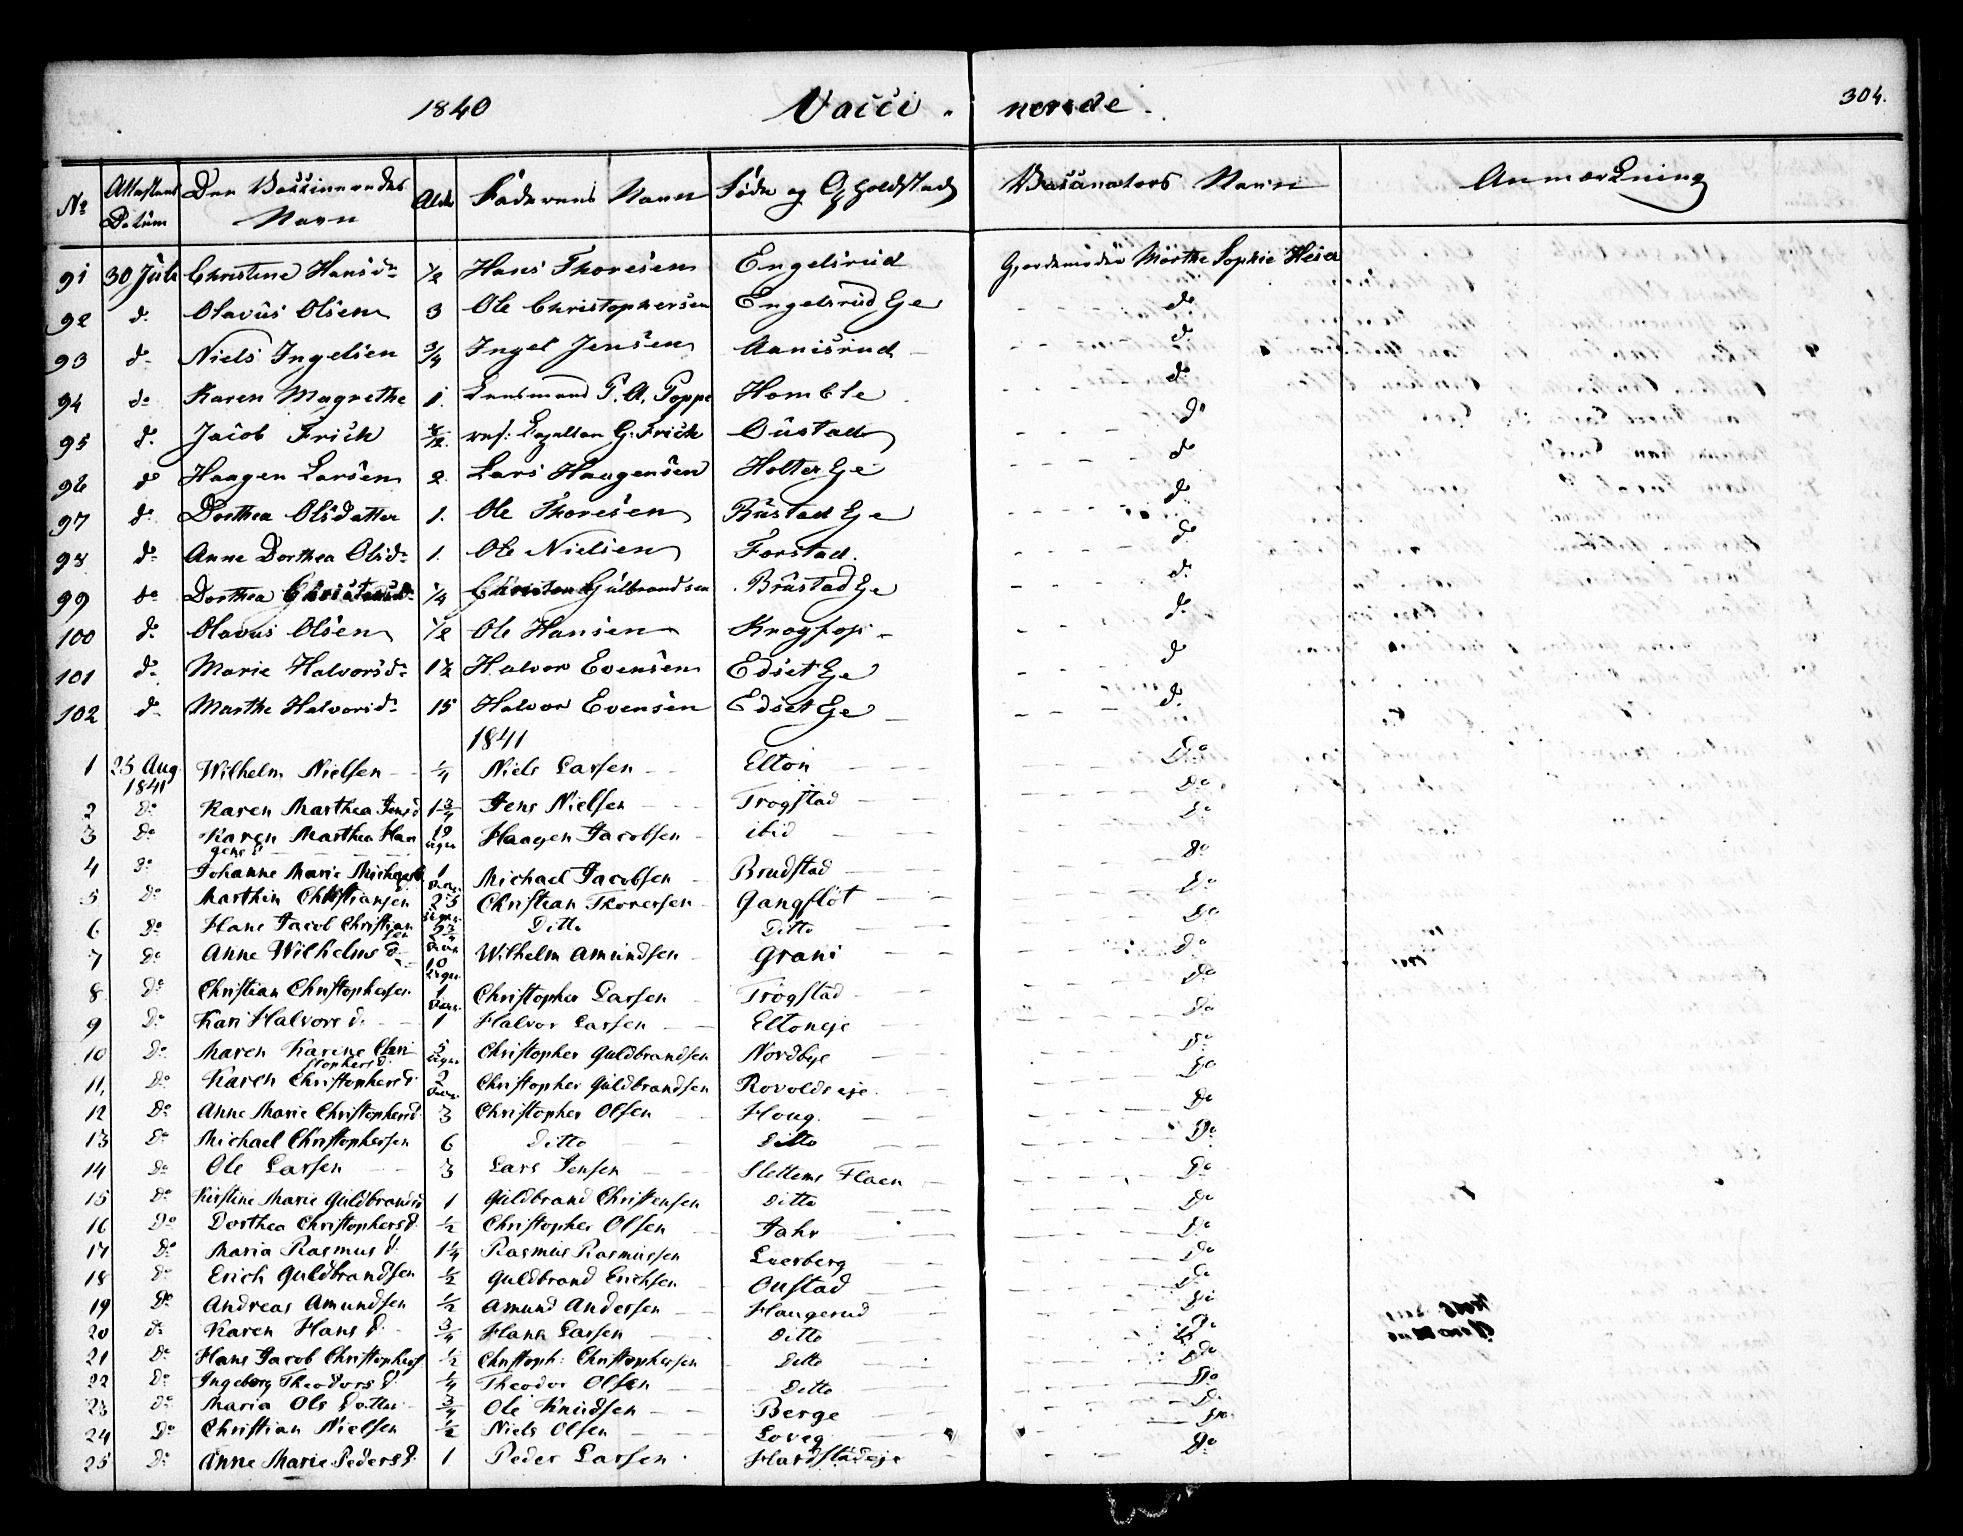 1840 Vacci- nerede. 304.
No Attestens Datum Den Vaccinerendes Navn Alder Faderens Navn Føde og Opholdsted Vaccinateurs Navn Anmærkning
91 30 Juli Christine Hansdr 1/2 Hans Thoresen Engelsrud Gjordemoder Marthe Sophie Heier
92 do Olavus Olsen 3 Ole Christophersen Engelsrud Eje do
93 do Niels Ingelsen 3/4 Ingel Jensen Aanisrud do
94 do Karen Magrethe 1. Lensmand P. A. Poppe Homble do
95 do Jacob Frich res: Capellan G. Frich Oustad do
96 do Haagen Larsen 2. Lars Haagensen Holter Eje do
97 do Dorthea Olsdatter 1. Ole Thoresen Brustad Eje do
98 do Anne Dorthea Olsdr 1. Ole Nielsen Forstad. do
99 do Dorthea 1/4 Gulbrandsen Brustad Eje do
100 do Olavus Olsen 1/2 Ole Hansen Krogfos do
101 do Marie Halvorsdr 1 1/2 Halvor Evensen Edset Eje do
102 do Marthe Halvorsdr 15 Halvor Evensen Edset Eje do
1841
1 25 Aug. 1841 Wilhelm Nielsen 1/4 Niels Larsen Elton Do
2 Do Karen Marthea Jens d 1 3/4 Jens Nielsen Trogstad Do
3 Do Karen Marthea Haagens d 19 Uger Haagen Jacobsen ibid Do
4 Do Johanne Marie Michaels 1 Michael Jacobsen Brudstad Do
5 Do Marthin Christiansen 25 Uger Christian Thoresen Gangflöt Do
6 Do Hans Jacob Christiansen Ditto Ditto Do
7 Do Anne Wilhelms d. 10 Uger Wilhelm Amundsen Grani Do
8 Do Christian Christophersen 1 Christopher Larsen Trogstad Do
9 Do Kari Halvors d. 1 Halvor Larsen Eltoneje Do
10 Do Maren Karine Christophers d 5 Uger Christopher Guldbrandsen Nordbye Do
11. Do Karen Christophers d. 2 Christopher Guldbrandsen Rovoldseje Do
12 Do Anne Marie Christophers d. 3 Christopher Olsen Houg. Do
13 Do Michael Christophersen 6 Ditto Ditto Do
14 Do Ole Larsen 3 Lars Jensen Slettems Floen Do
15 Do Kirstine Marie Guldbrands d 1 Guldbrand Christensen Ditto Do
16 Do Dorthea Christophers d. 1/2 Christopher Olsen Jahr Do
17 Do Maria Rasmus d. 1 1/4 Rasmus Rasmussen Lverberg Do
18 Do Erich Guldbrandsen 1/2 Guldbrand Erichsen Oustad Do
19 Do Andreas Amundsen 1/2 Amund Andersen Haugerud Do
20 do Karen Hans d. 3/4 Hans Larsen Ditto Do
21 Do Hans Jacob Christophers 1/2 Christoph: Christophersen Ditto Do
22 Do Ingeborg Theodors d. 1/4 Theodor Olsen Ditto Do
23 Do Maria Ols Datter 3/4 Ole Knudsen Berge Do
24 Do Christian Nielsen 1/2 Niels Olsen Loveg Do
25 Do Anne Marie Peders d. 1 Peder Larsen Hardstadeje Do